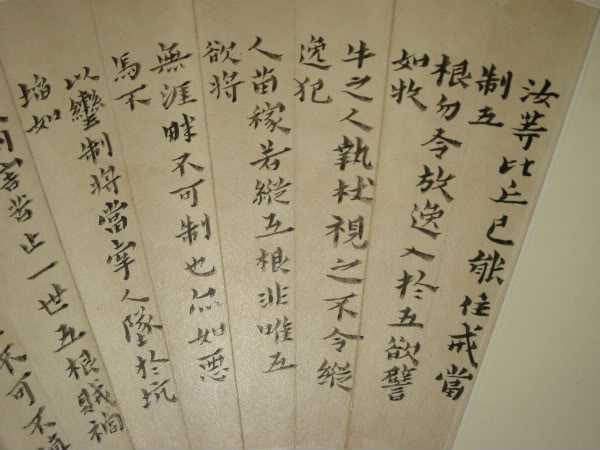 汝等比丘已能住戒當
制五
根勿令放逸入於五欲譬
如牧
牛之人執杖視之不令縱
逸犯
人苗稼若縱五根非唯五
欲將
無涯畔不可制也亦如惡
馬不
以轡制將當牽人墜於坑
埳如
害苦止一世五根賊禍
不可不慎